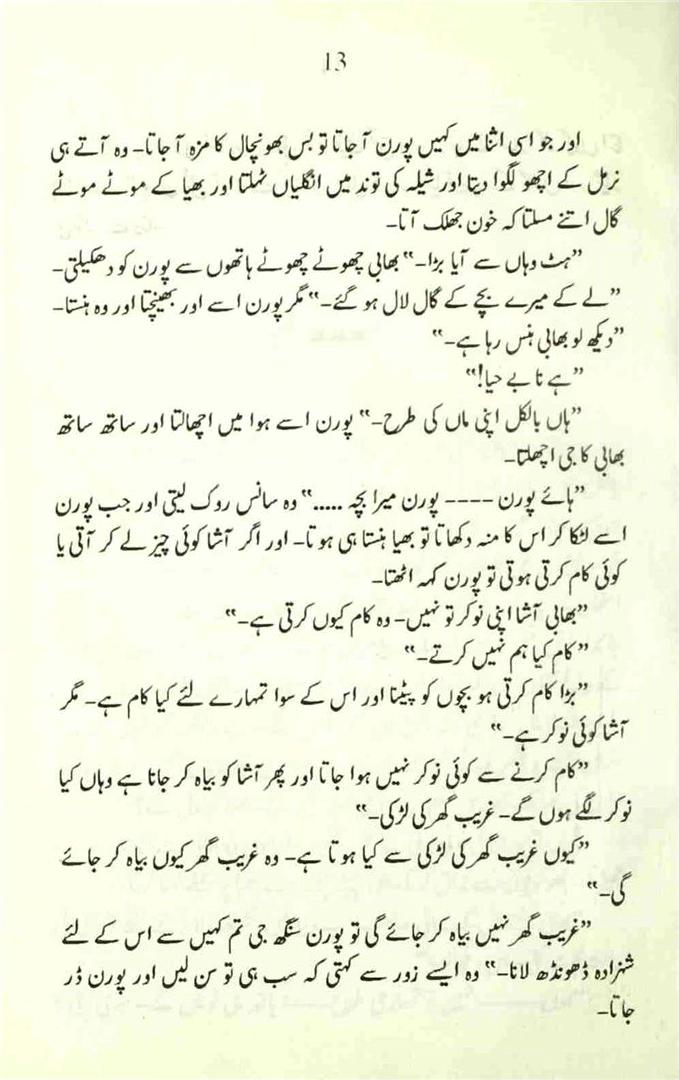 13
اور جو اسی اثنا میں کہیں پورن آ جاتا تو بس بھونچال کا مزہ آ جاتا۔ وہ آتے ہی
نرمل کے اچھو لگوا دیتا اور شیلہ کی توند میں انگلیاں ٹہلتا اور بھیا کے موٹے موٹے
گال اتنے مسلتا کہ خون جھلک آتا۔
”ہٹ وہاں سے آیا بڑا۔“ بھابی چھوٹے چھوٹے ہاتھوں سے پورن کو دھکیلتی۔
”لے کے میرے بچے کے گال لال ہو گئے۔“ مگر پورن اسے اور بھینچتا اور وہ ہنستا۔
”دیکھ لو بھابی ہنس رہا ہے۔“
”ہے نا بے حیا!“
”ہاں بالکل اپنی ماں کی طرح۔“ پورن اسے ہوا میں اچھالتا اور ساتھ ساتھ
بھابی کا جی اچھلتا۔
”ہائے پورن ---- پورن میرا بچہ .....“ وہ سانس روک لیتی اور جب پورن
اسے لٹکا کر اس کا منہ دکھاتا تو بھیا ہنستا ہی ہوتا۔ اور اگر آشا کوئی چیز لے کر آتی یا
کوئی کام کرتی ہوتی تو پورن کہہ اٹھتا۔
”بھابی آشا اپنی نوکر تو نہیں۔ وہ کام کیوں کرتی ہے۔“
”کام کیا ہم نہیں کرتے۔“
”بڑا کام کرتی ہو بچوں کو پیٹنا اور اس کے سوا تمہارے لئے کیا کام ہے۔ مگر
آشا کوئی نوکر ہے۔“
”کام کرنے سے کوئی نوکر نہیں ہوا جاتا اور پھر آشا کو بیاہ کر جانا ہے وہاں کیا
نوکر لگے ہوں گے۔ غریب گھر کی لڑکی۔“
”کیوں غریب گھر کی لڑکی سے کیا ہوتا ہے۔ وہ غریب گھر کیوں بیاہ کر جائے
گی۔“
”غریب گھر نہیں بیاہ کر جائے گی تو پورن سنگھ جی تم کہیں سے اس کے لئے
شہزادہ ڈھونڈھ لانا۔“ وہ ایسے زور سے کہتی کہ سب ہی تو سن لیں اور پورن ڈر
جاتا۔